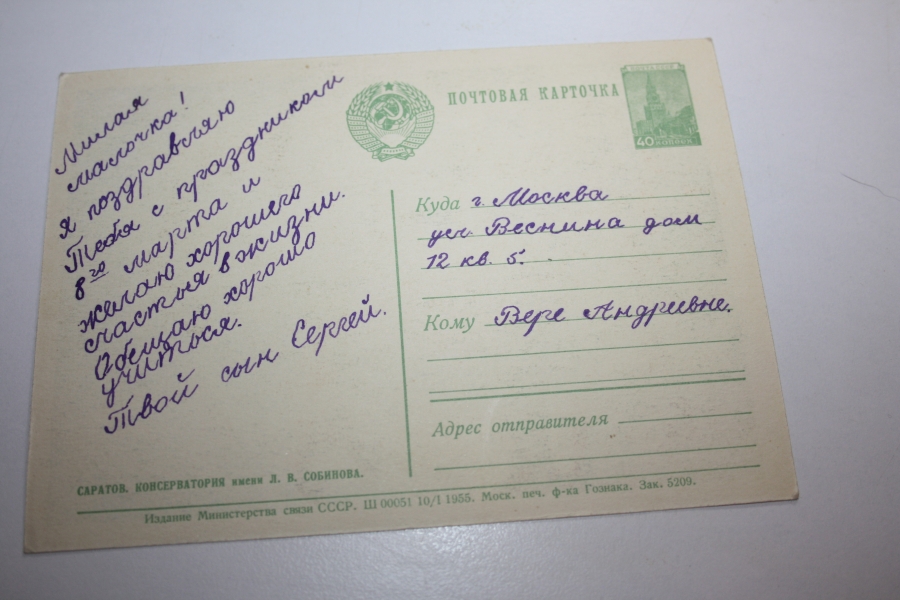 Милая
мамочка!
Я поздравляю
Тебя с праздником
8го марта и
желаю хорошего
счастья в жизни.
Обещаю хорошо
учиться.
Твой сын Сергей.
САРАТОВ. КОНСЕРВАТОРИЯ имени Л. В. СОБИНОВА.
ПОЧТОВАЯ КАРТОЧКА
40
КОПЕЕК
Куда г. Москва
ул. Веснина дом
12 кв. 5.
Кому Вере Андревне.
Адрес отправителя
Издание Министерства связи СССР. Ш 00051 10/I 1955. Моск. печ. ф-ка Гознака. Зак. 5209.